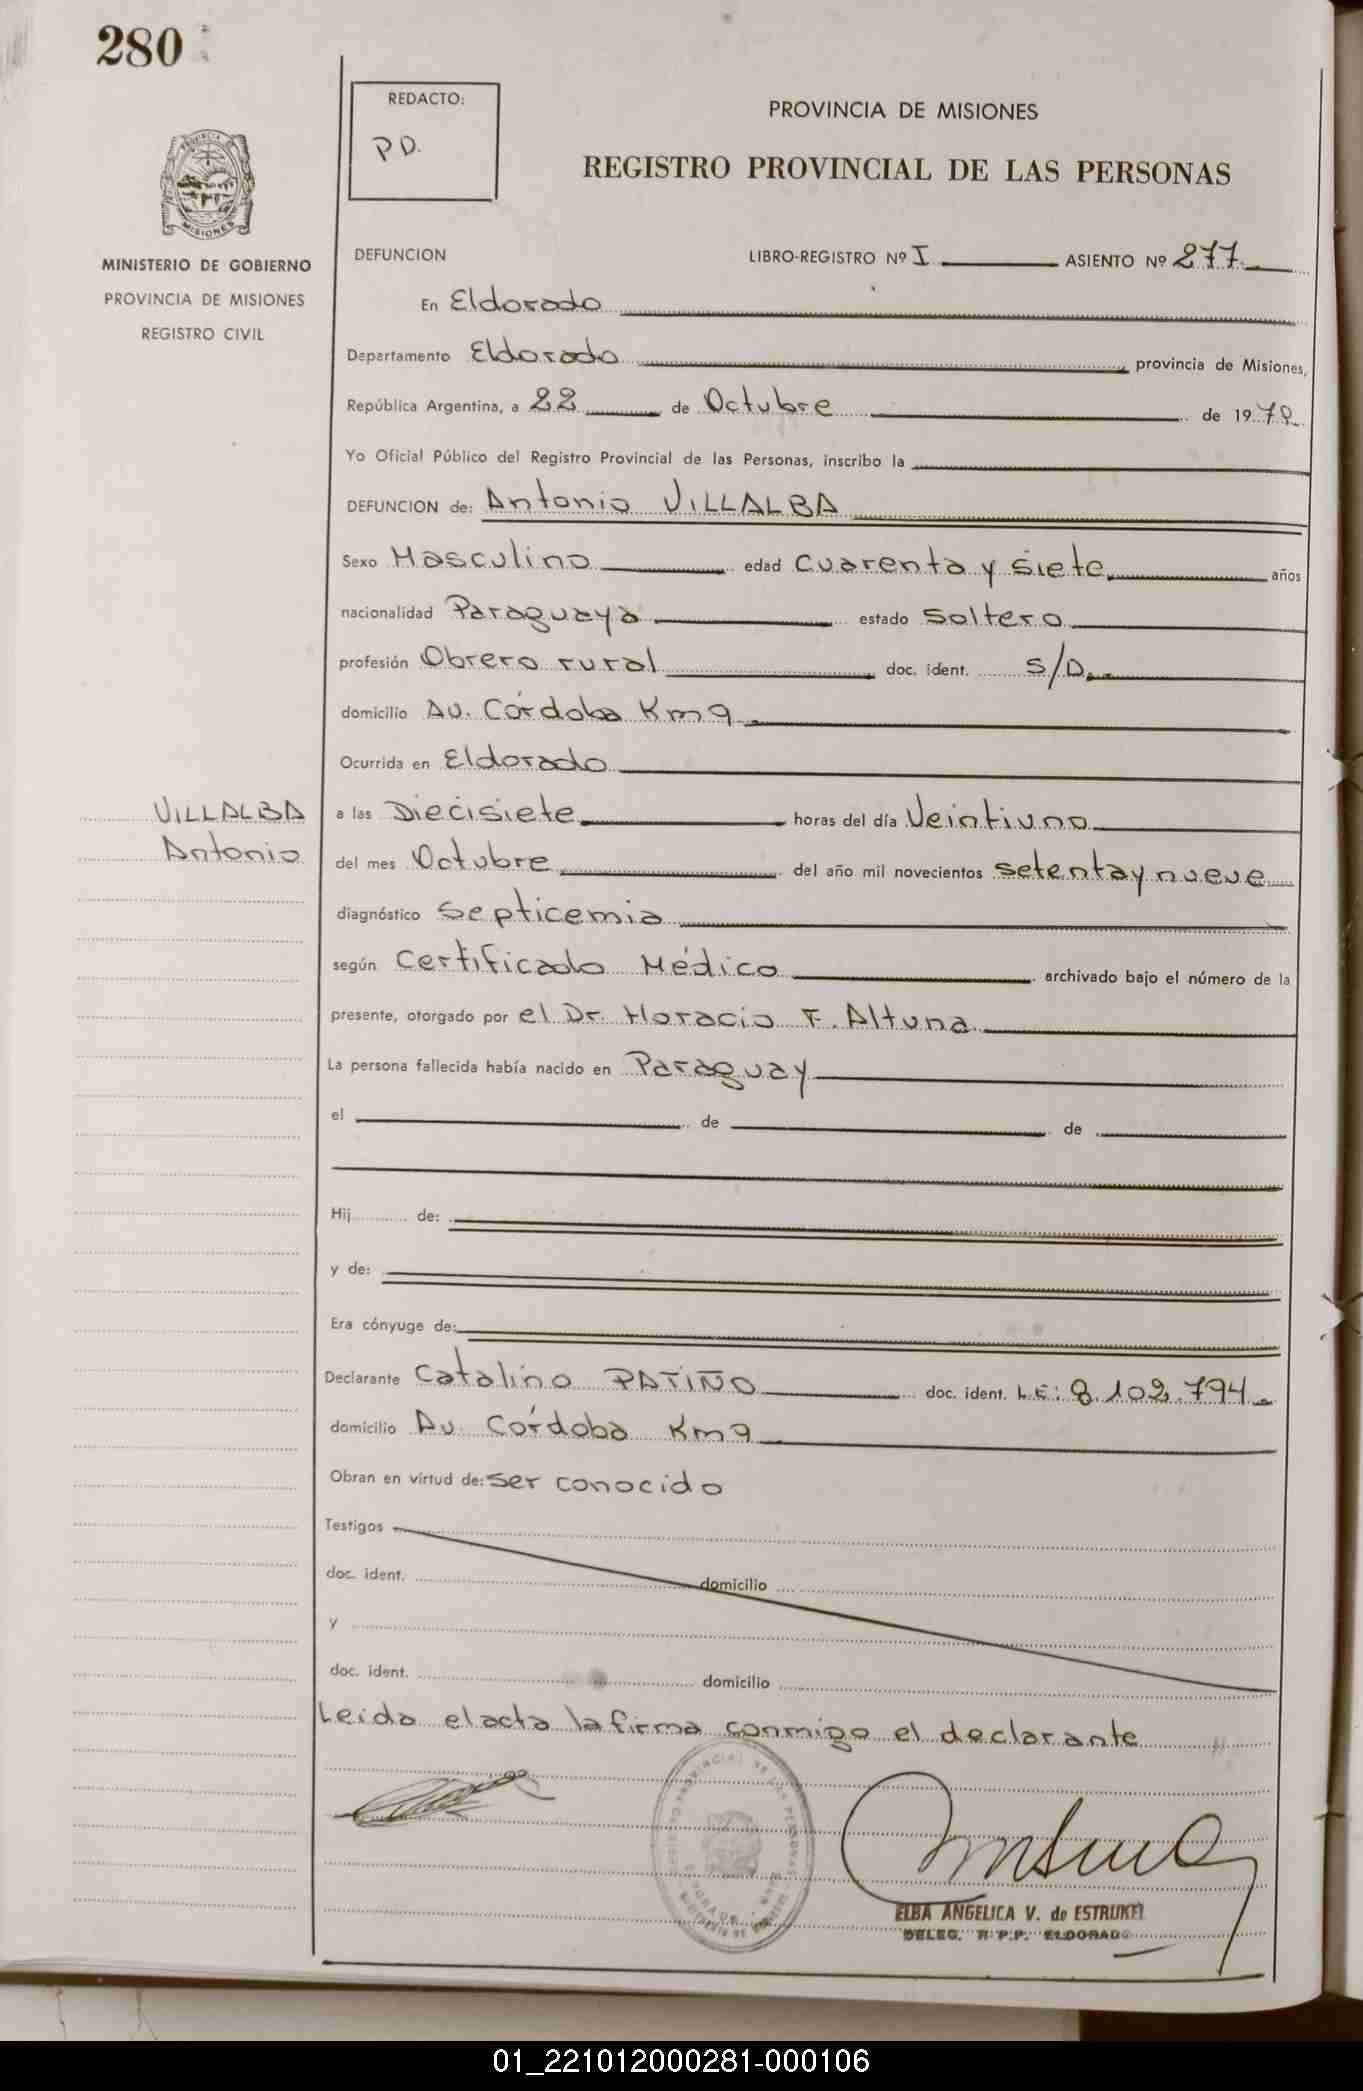 280
REDACTO:
P D.
PROVINCIA DE MISIONES
REGISTRO PROVINCIAL DE LAS PERSONAS
PROVINCIA
MISIONES
MINISTERIO DE GOBIERNO
PROVINCIA DE MISIONES
REGISTRO CIVIL
DEFUNCION LIBRO-REGISTRO Nº I ASIENTO Nº 277
En Eldorado
Departamento Eldorado provincia de Misiones,
República Argentina, a 22 de Octubre de 1979
Yo Oficial Público del Registro Provincial de las Personas, inscribo la
DEFUNCION de: Antonio VILLALBA
Sexo Masculino edad cuarenta y siete años
nacionalidad Paraguaya estado soltero
profesión Obrero rural doc. ident. S/D.
domicilio Av. Córdoba Km 9
Ocurrida en Eldorado
VILLALBA
Antonio
a las Diecisiete horas del día Veintiuno
del mes Octubre del año mil novecientos setenta y nueve
diagnóstico Septicemia
según Certificado Médico archivado bajo el número de la
presente, otorgado por el Dr. Horacio F. Altuna
La persona fallecida había nacido en Paraguay
el de de
Hij de:
y de:
Era cónyuge de:
Declarante Catalino PATIÑO doc. ident. L.E: 8.102.794
domicilio Av. Córdoba Km 9
Obran en virtud de: ser conocido
Testigos
doc. ident. domicilio
y
doc. ident. domicilio
Leida el acta la firma conmigo el declarante
ELBA ANGELICA V. de ESTRUKEL
DELEG. R.P.P. ELDORADO
01_221012000281-000106